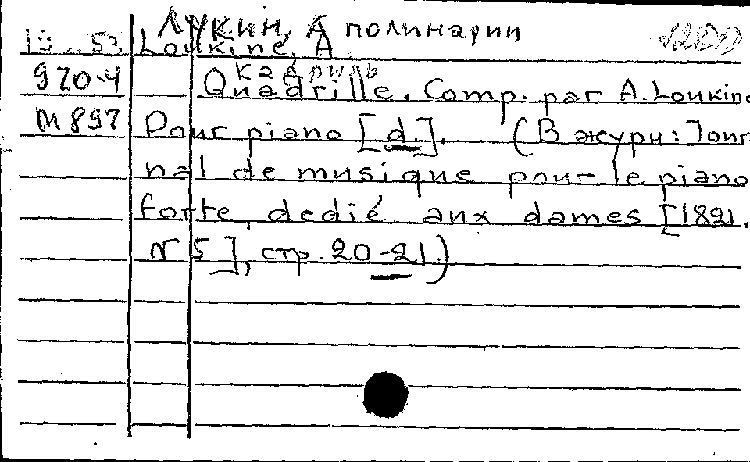 ЛУКИН, Аполинарии
Loukine, A
970.4 Кадриль
Quadrille. Comp. par A. Loukine
М 897 Pour piano [d.]. (В журн: Jour
nal de musique pour le piano
forte, dedié aux dames [1821.
N 5], стр. 20-21.)